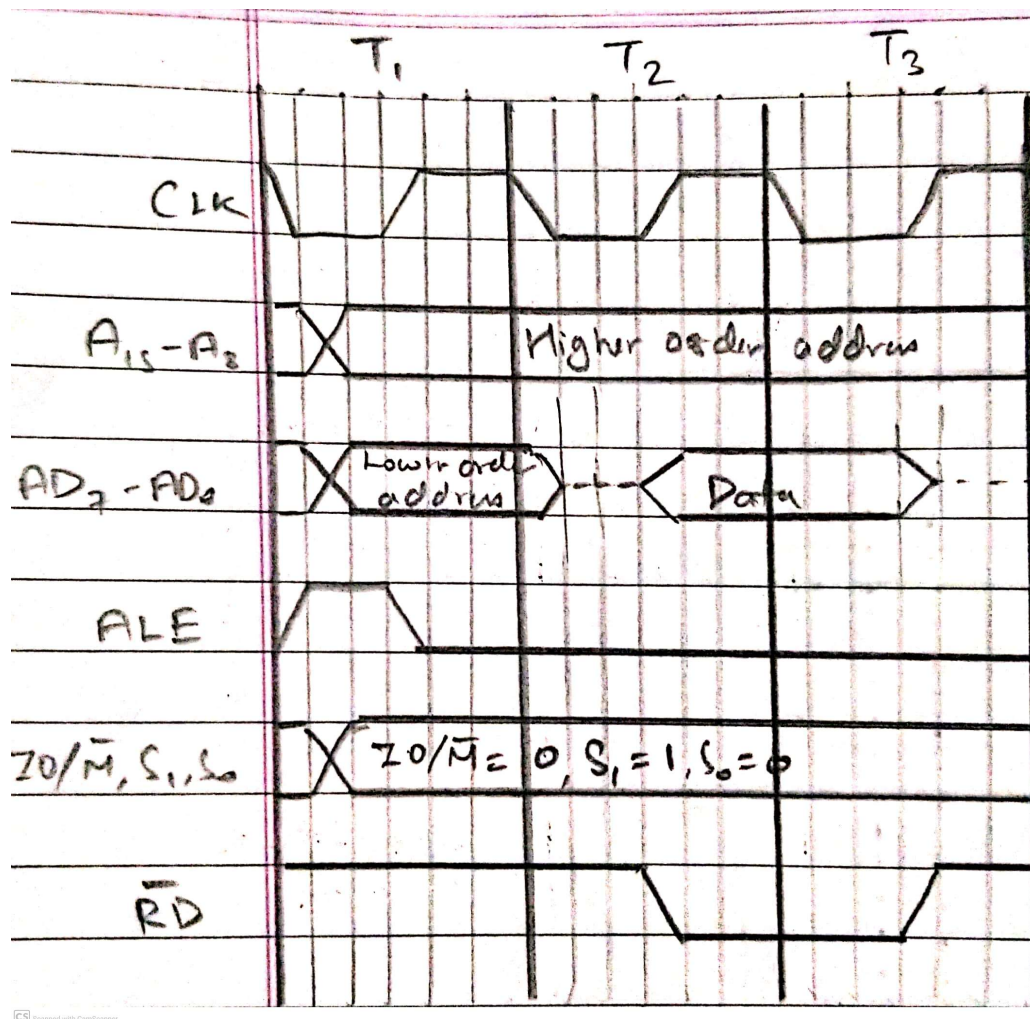 T₁ T₂ T₃
CLK
A₁₅-A₈ Higher order address
AD₇-AD₀ Lower order address Data
ALE
IO/M̄, S₁, S₀ IO/M̄ = 0, S₁ = 1, S₀ = 0
R̄D̄
CS Scanned with CamScanner